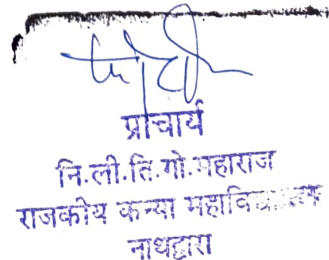 प्राचार्य
नि.ली.ति.गो.महाराज
राजकीय कन्या महाविद्यालय
नाथद्वारा